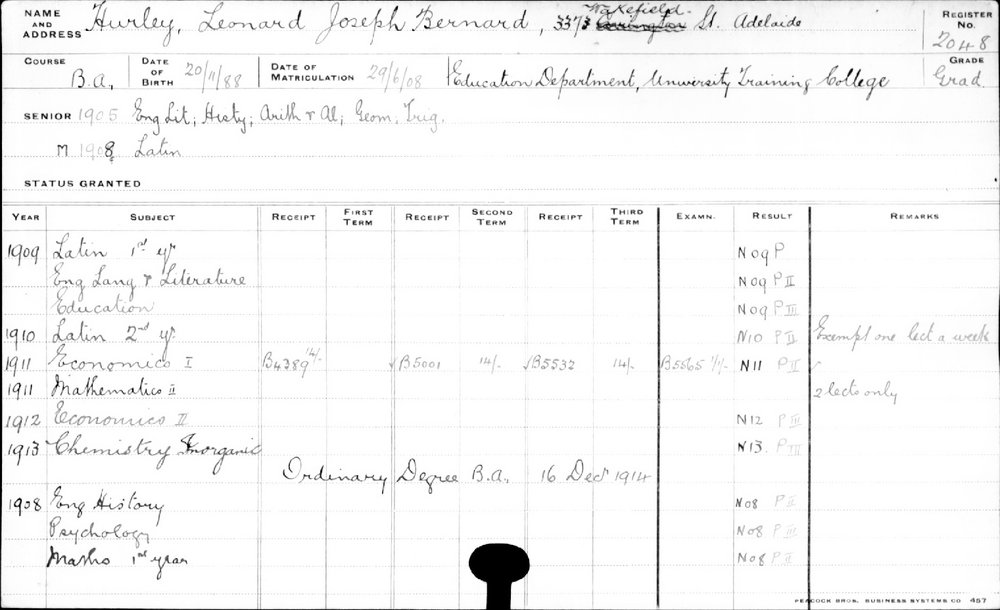 NAME AND ADDRESS Hurley, Leonard Joseph Bernard, 337 Wakefield St. Adelaide REGISTER No. 2048
COURSE B.A., DATE OF BIRTH 20/11/88 DATE OF MATRICULATION 29/6/08 Education Department, University Training College GRADE Grad.
SENIOR 1905 Eng Lit; Histy; Arith & Al; Geom; Trig.
M 1908 Latin
STATUS GRANTED
YEAR SUBJECT RECEIPT FIRST TERM RECEIPT SECOND TERM RECEIPT THIRD TERM EXAMN. RESULT REMARKS
1909 Latin 1st yr N 09 P
Eng Lang & Literature N 09 P II
Education N 09 P III
1910 Latin 2nd yr. N 10 P II Exempt one lect a week
1911 Economics I B4389 14/- √ B5001 14/- √ B5532 14/- B5565 N 11 P II √
1911 Mathematics II 2 lects only
1912 Economics II N 12 P III
1913 Chemistry Inorganic N 13. P III
Ordinary Degree B.A., 16 Decr 1914
1908 Eng History N 08 P II
Psychology N 08 P III
Maths 1st year N 08 P II
PEACOCK BROS. BUSINESS SYSTEMS CO 457